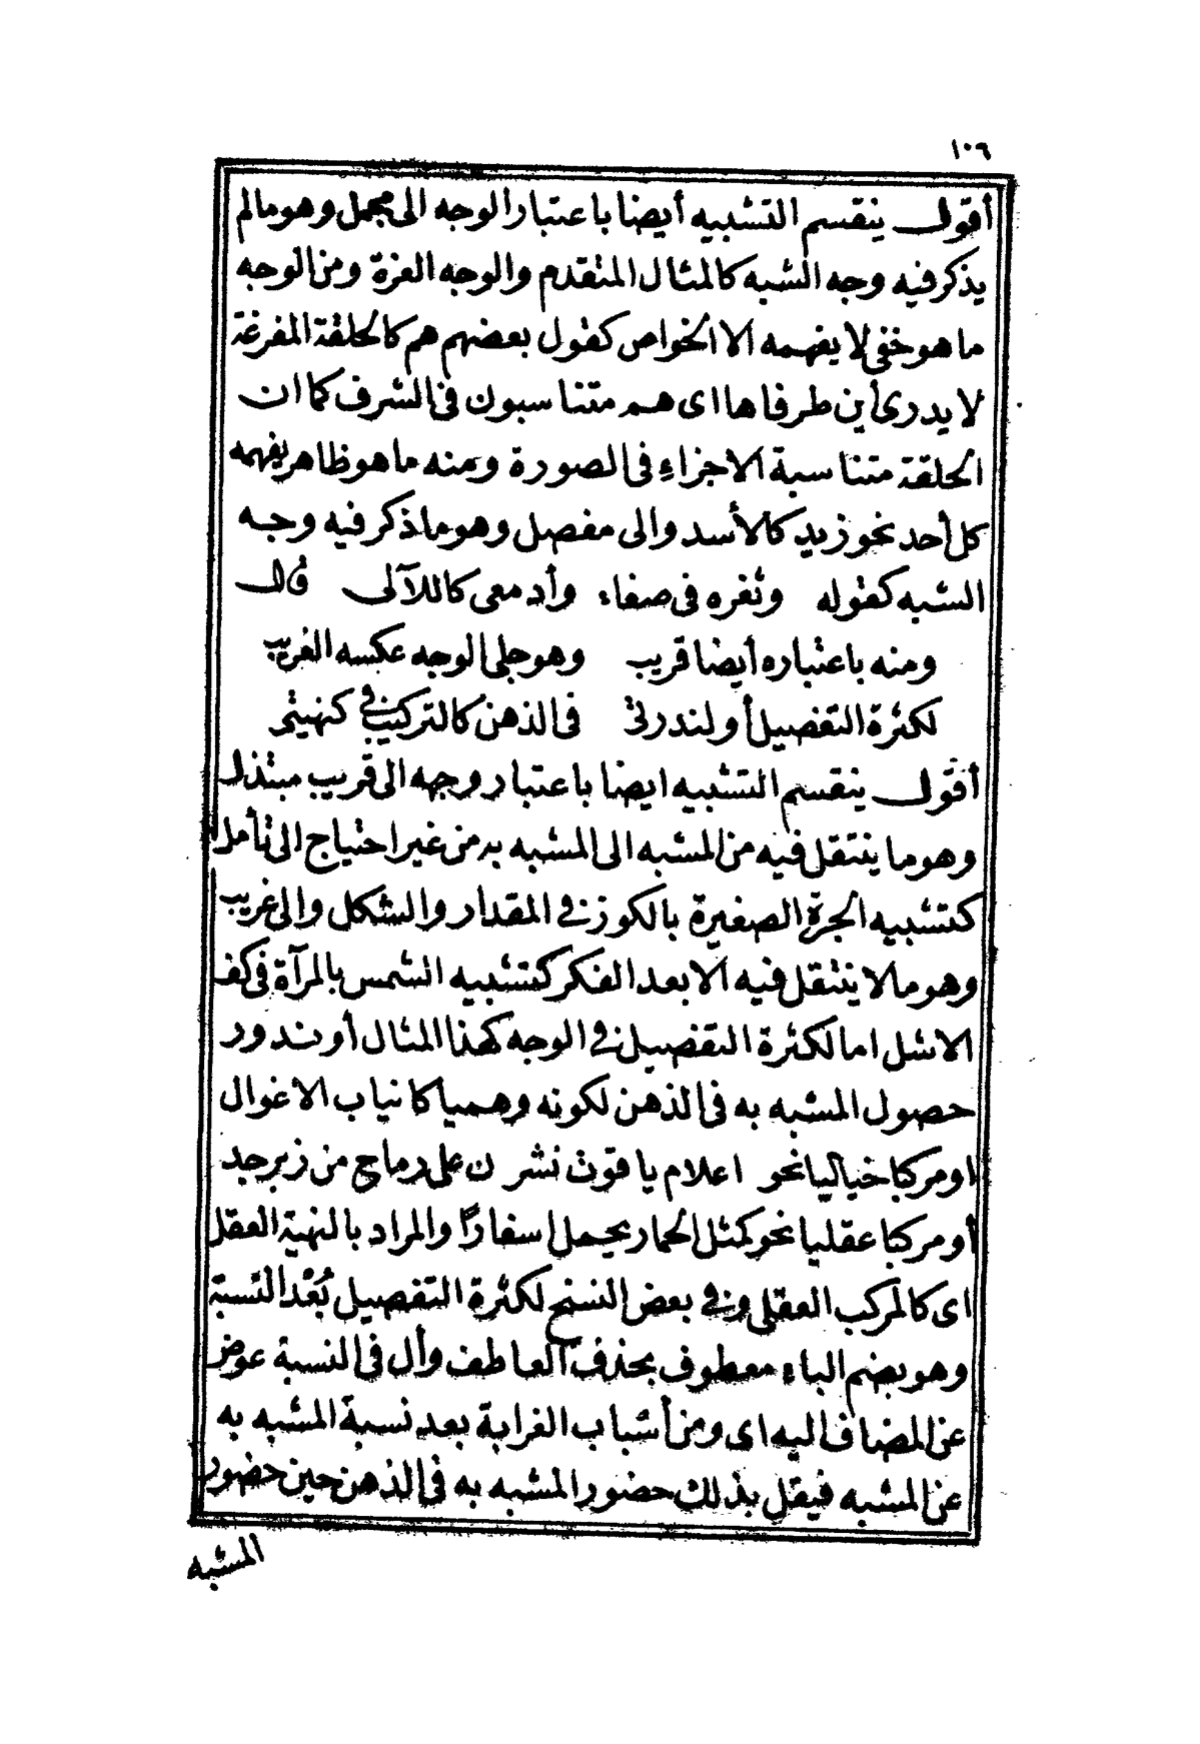 ١٠٦
أقول ينقسم التشبيه أيضا باعتبار الوجه الى مجمل وهو مالم
يذكر فيه وجه الشبه كالمثال المتقدم والوجه العزة ومن الوجه
ما هو خفى لا يفهمه الا الخواص كقول بعضهم هم كالحلقة المفرغة
لا يدرى أين طرفاها اى هم متناسبون فى الشرف كما ان
الحلقة متناسبة الاجزاء فى الصورة ومنه ما هو ظاهر يفهمه
كل أحد نحو زيد كالأسد والى مفصل وهو ماذكر فيه وجه
الشبه كقوله وثغره فى صفاء وأدمعى كاللآلى قال
ومنه باعتباره أيضا قريب وهو جلى الوجه عكسه الغريب
لكثرة التفصيل أو لندرتى فى الذهن كالتركيب فى كنهيتى
أقول ينقسم التشبيه ايضا باعتبار وجهه الى قريب مبتذل
وهو ما ينتقل فيه من المشبه الى المشبه به من غير احتياج الى تأمل
كتشبيه الجرة الصغيرة بالكوز فى المقدار والشكل والى غريب
وهو ما لا ينتقل فيه الا بعد الفكر كتشبيه الشمس بالمرآة فى كف
الاشل اما لكثرة التفصيل فى الوجه كهذا المثال أو ندور
حصول المشبه به فى الذهن لكونه وهميا كانياب الاغوال
او مركبا خياليا نحو اعلام ياقوت نشرن على رماح من زبرجد
أو مركبا عقليا نحو كمثل الحمار يحمل اسفارًا والمراد بالنهية العقل
اى كالمركب العقلى وفى بعض النسخ لكثرة التفصيل بُعْد النسبة
وهو بضم الباء معطوف بحذف العاطف وأل فى النسبة عوض
عن المضاف اليه اى ومن أشباب الغرابة بعد نسبة المشبه به
عن المشبه فيقل بذلك حضور المشبه به فى الذهن حين حضور
المشبه